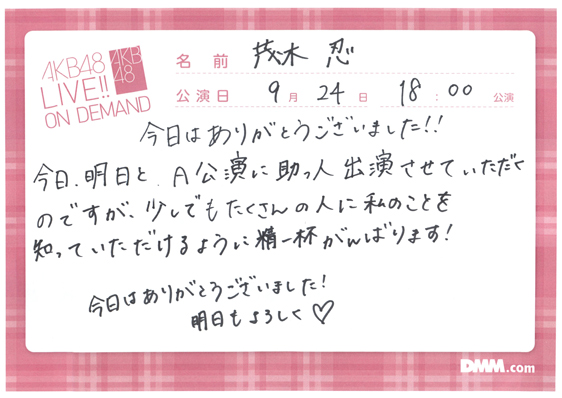 AKB48
LIVE!!
ON DEMAND
AKB
48
名前 茂木 忍
公演日 9月 24日 18:00 公演
今日はありがとうございました!!
今日、明日と、A公演に助っ人出演させていただく
のですが、少しでもたくさんの人に私のことを
知っていただけるように精一杯がんばります!
今日はありがとうございました!
明日もよろしく♡
DMM.com